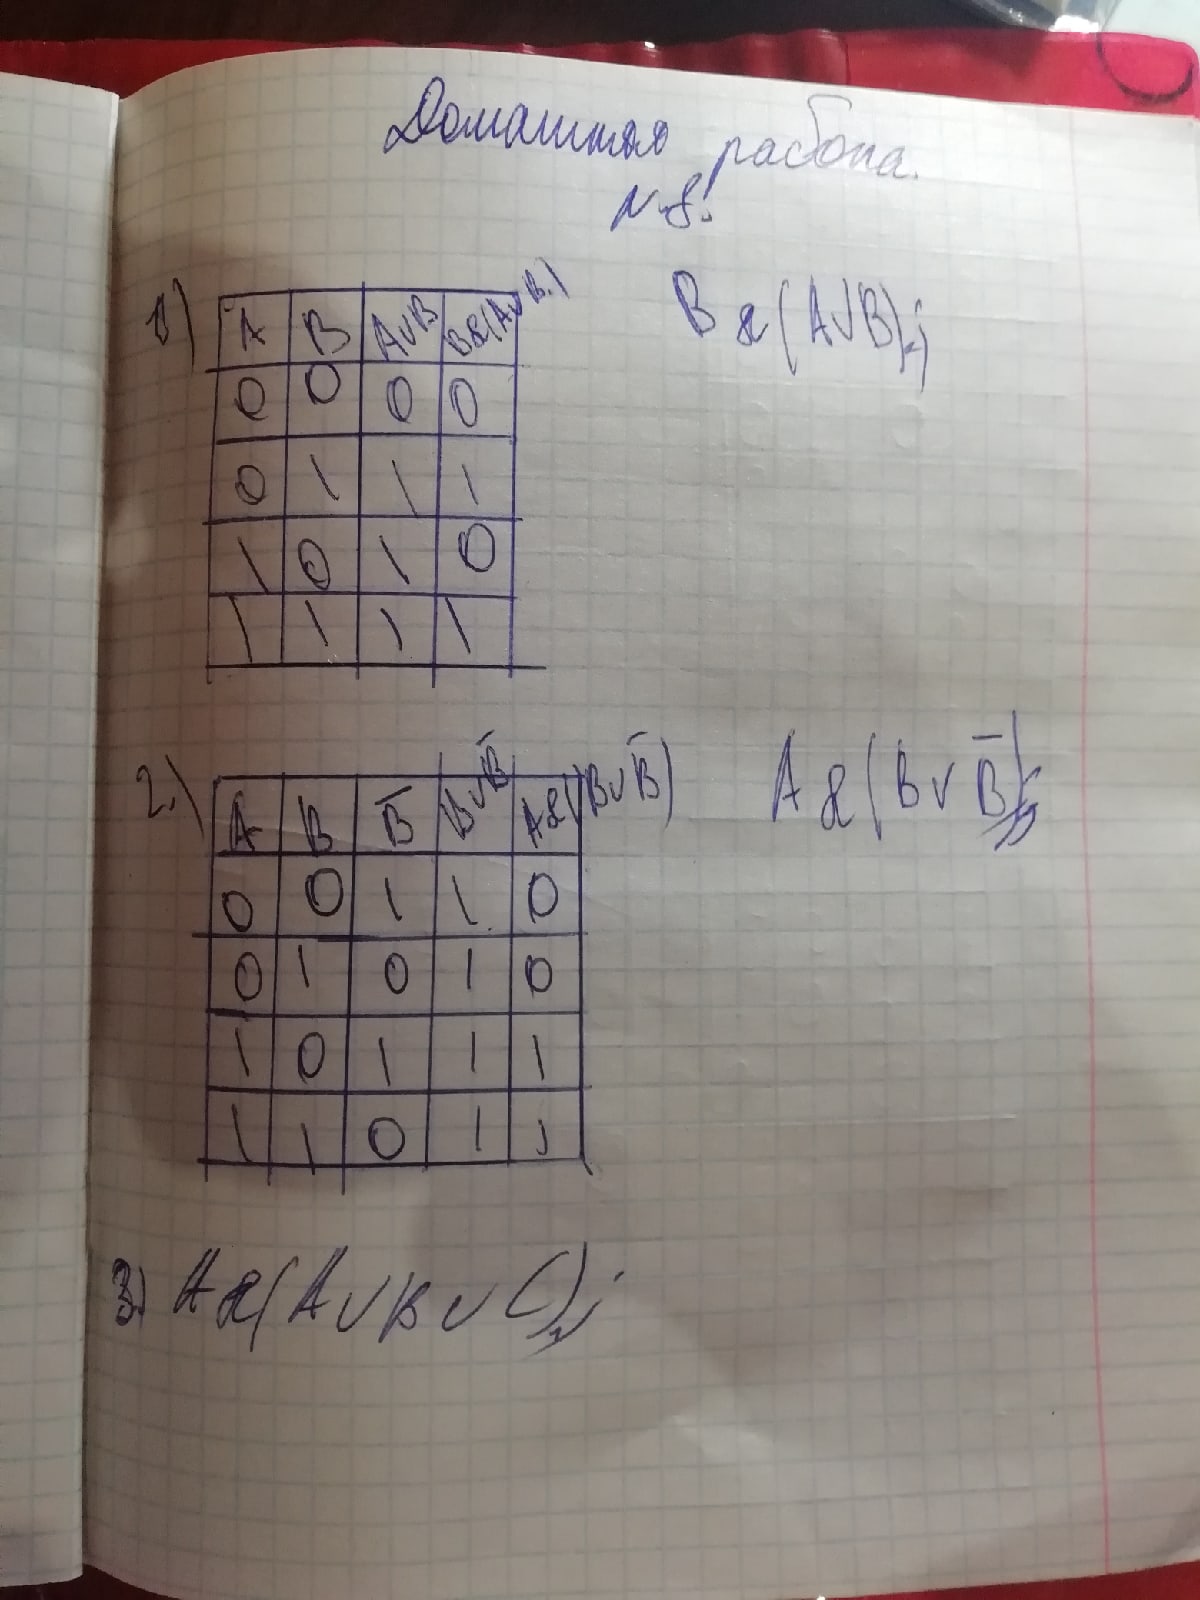 Домашняя работа.
N.8.
1) B&(A∨B);
A B A∨B B&(A∨B)
0 0 0 0
0 1 1 1
1 0 1 0
1 1 1 1
2.) A&(B∨B̅);
A B B̅ B∨B̅ A&(B∨B̅)
0 0 1 1 0
0 1 0 1 0
1 0 1 1 1
1 1 0 1 1
3) A&(A∨B∨C);